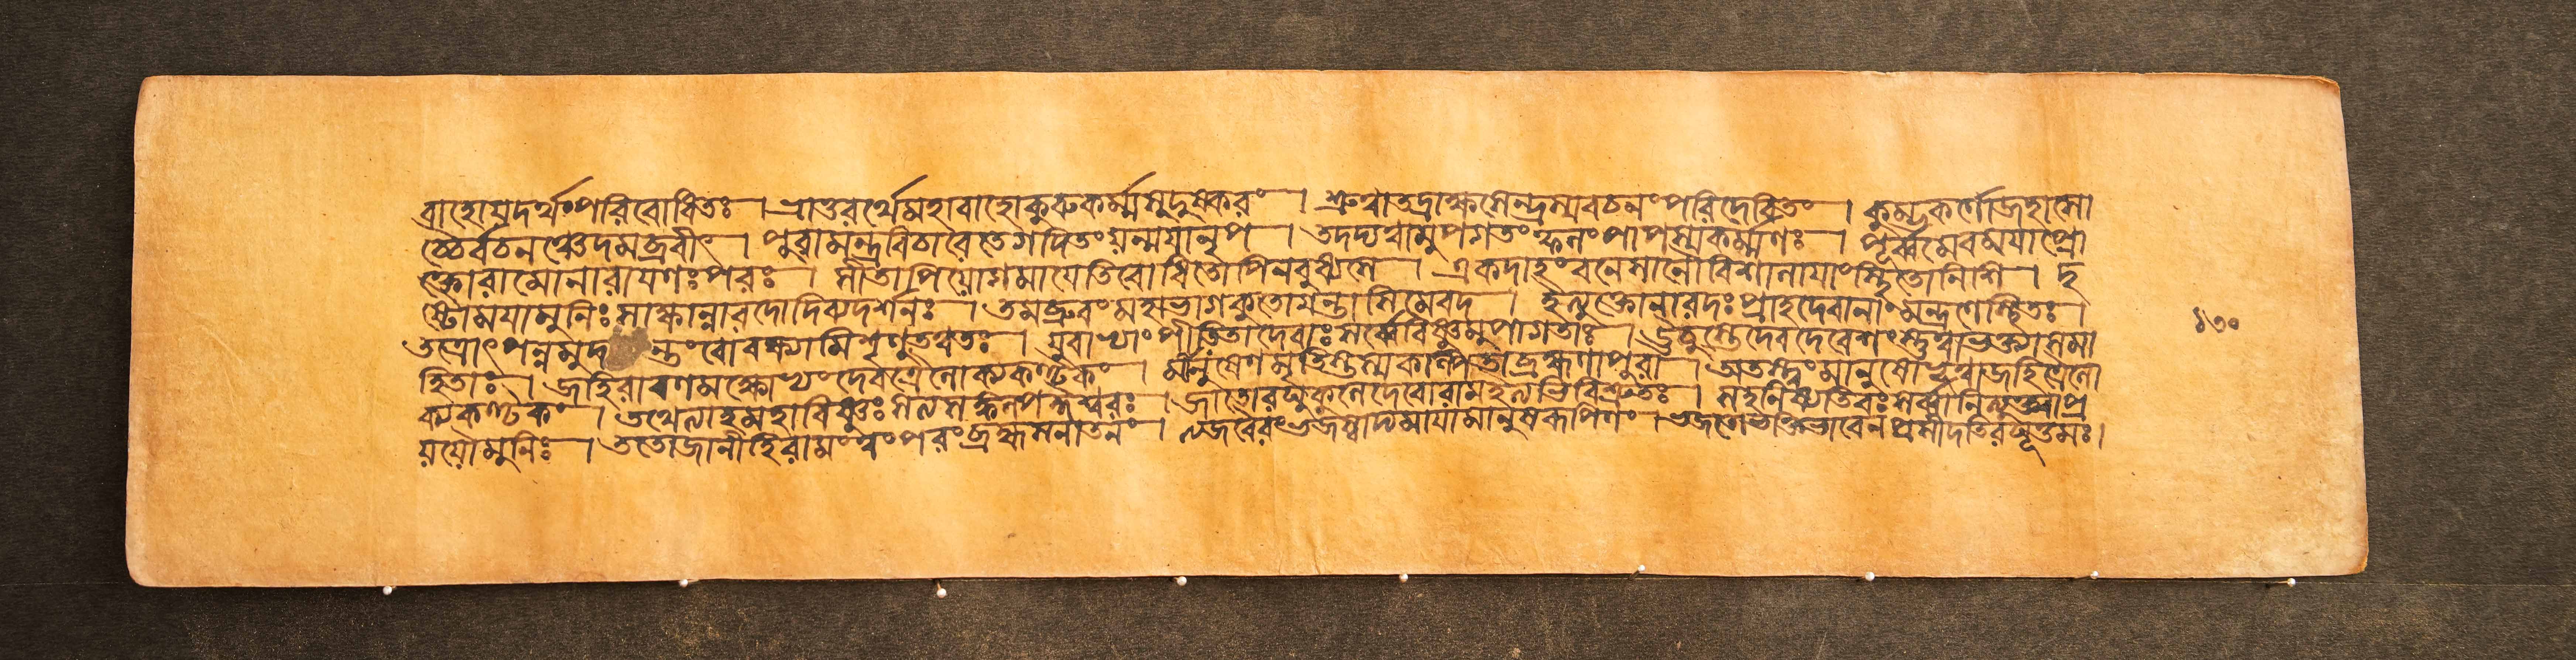 ব্রাহোযদর্থংপরিবোধিতঃ । ভ্রাতুরর্থেমহাবাহোকুরুকর্ম্মসুদুষ্করং । শ্রুত্বাতদ্রাক্ষসেন্দ্রস্যবচনংপরিদেবিতং । কুম্ভকর্ণোজহাসো
চ্চৈর্বচনঞ্চেদমব্রবীৎ । পুরামন্ত্রবিচারেতেগদিতংযন্ময়ানৃপ । তদদ্যত্বামুপগতংফলংপাপস্যকর্ম্মণঃ । পূর্ব্বমেবময়াপ্রো
ক্তোরামোনারায়ণঃপরঃ । সীতাপিযোগমায়েতিবোধিতোপিনবুধ্যসে । একদাহংবনেসানৌবিশালায়াংস্থিতোনিশি । দৃ
ষ্টোময়ামুনিঃসাক্ষান্নারদোদিব্যদর্শনঃ । তমব্রুবংমহাভাগকুতোগন্তাসিমেবদ । ইত্যুক্তোনারদঃপ্রাহদেবানাংমন্ত্রণেস্থিতঃ ।
তত্রোৎপন্নমুদ ন্তংবোবক্ষ্যামিশৃণুতত্বতঃ । যুবাভ্যাংপীডিতাদেবাঃসর্ব্বেবিষ্ণুমুপাগতাঃ । ঊচুস্তেদেবদেবেশংস্তুত্বাভক্ত্যাসমা
হিতাঃ । জহিরাবণমক্ষোভ্যংদেবত্রৈলোক্যকণ্টকং । মানুষেণমৃতিস্তস্যকল্পিতাব্রহ্মণাপুরা । অতস্ত্বংমানুষোভূত্বাজহিত্রৈলো
ক্যকণ্টকং । তথেত্যাহমহাবিষ্ণুঃসত্যসঙ্কল্পঈশ্বরঃ । জাতোরঘুকুলেদেবোরামইত্যভিবিশ্রুতঃ । সহনিষ্যতিবঃসর্ব্বানিত্যুক্ত্বাপ্র
যযৌমুনিঃ । অতোজানীহিরামংত্বংপরংব্রহ্মসনাতনং । ত্যজবৈরংভজস্বাদ্যমায়ামানুষরূপিণং । ভজতোভক্তিভাবেনপ্রসীদতিরঘূত্তমঃ।
১৩০